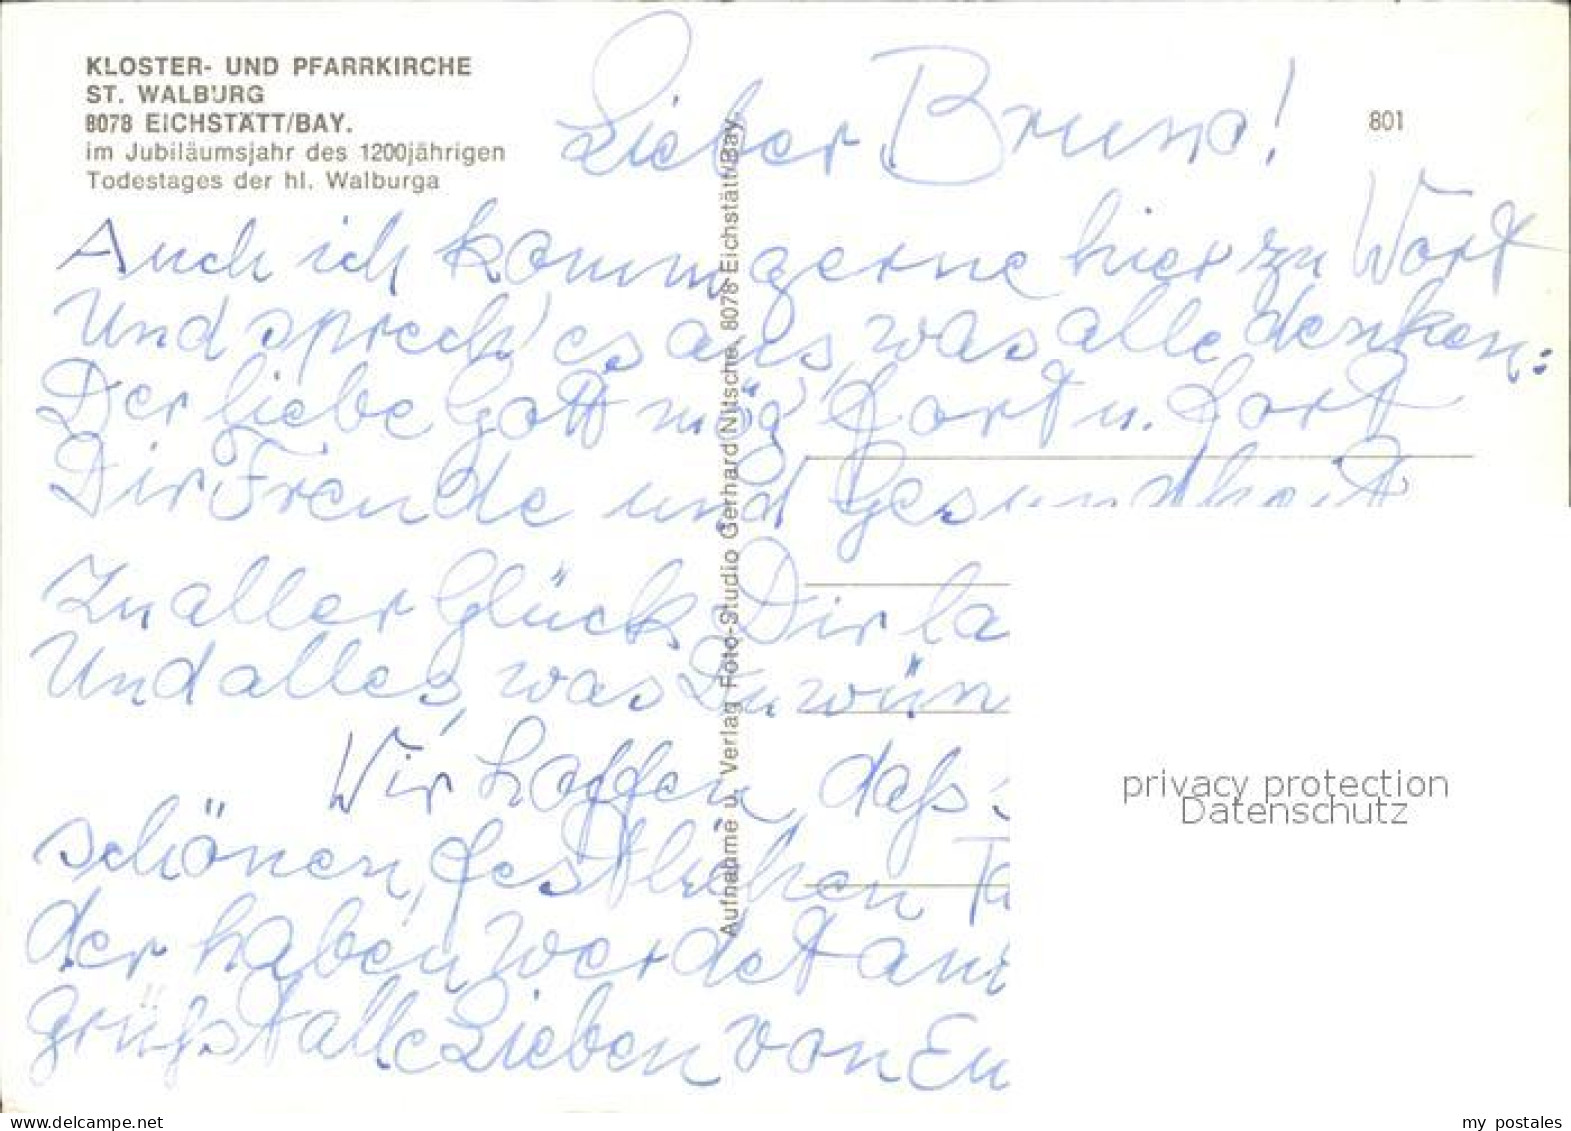 KLOSTER- UND PFARRKIRCHE
ST. WALBURG
8078 EICHSTÄTT/BAY.
im Jubiläumsjahr des 1200jährigen
Todestages der hl. Walburga
801
Lieber Bruno!
Auch ich komm gerne hier zu Wort
Und sprech' es aus, was alle denken:
Der liebe Gott mög' fort u. fort
Dir Freude und Gesundheit
Zu aller Glück Dir la
Und alles, was Du wün
Wir hoffen, daß
schönen, festlichen Ta
der haben werdet am
grüßt alle Lieben von Eu
Aufnahme u. Verlag Foto-Studio Gerhard Nitsche, 8078 Eichstätt/Bay.
privacy protection
Datenschutz
delcampe.net
my_postales